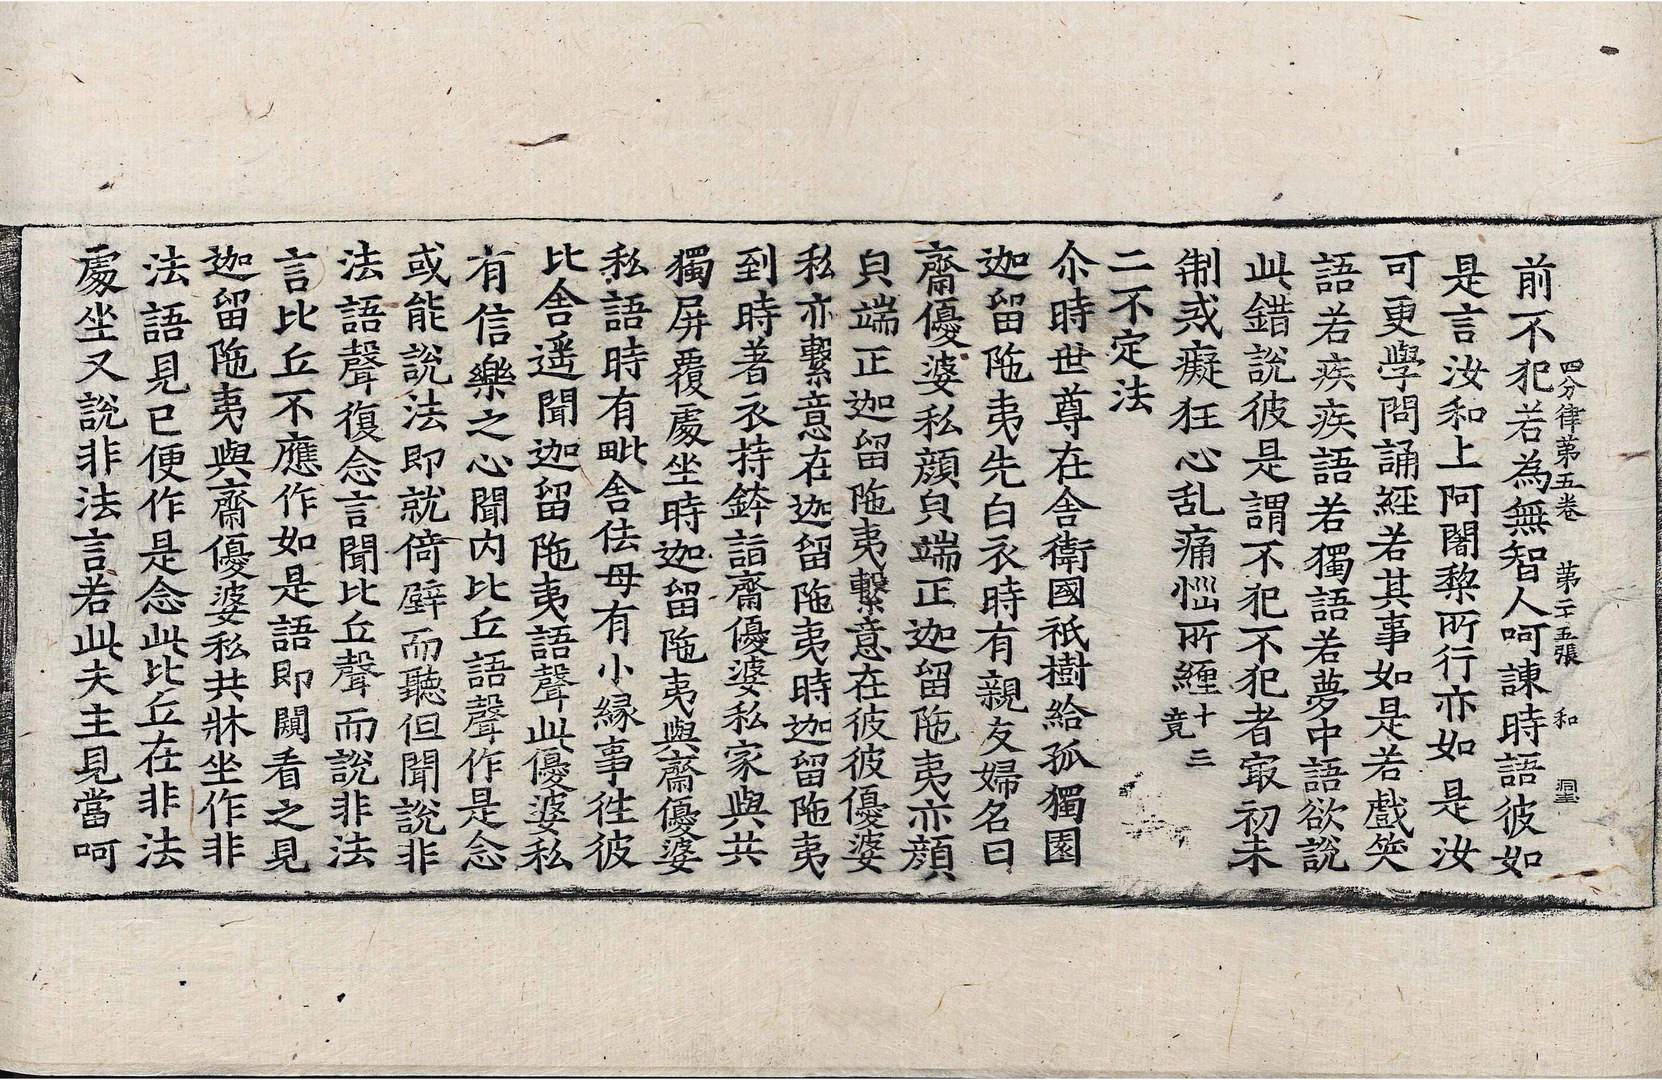 四分律第五卷 第二十五張 和
前不犯若為無智人呵諫時語彼如
是言汝和上阿闍棃所行亦如是汝
可更學問誦經若其事如是若戲笑
語若疾疾語若獨語若夢中語欲說
此錯說彼是謂不犯不犯者㝡初未
制戒癡狂心乱痛惱所纏十三竟
二不定法
尒時世尊在舍衛國祇樹給孤獨園
迦留陁夷先白衣時有親友婦名曰
齋優婆私顏皃端正迦留陁夷亦顏
皃端正迦留陁夷繫意在彼彼優婆
私亦繫意在迦留陁夷時迦留陁夷
到時著衣持鉢詣齋優婆私家與共
獨屏覆處坐時迦留陁夷與齋優婆
私語時有毗舍佉母有小緣事徃彼
比舍遥聞迦留陁夷語聲此優婆私
有信樂之心聞內比丘語聲作是念
或能說法即就倚壁而聽但聞說非
法語聲復念言聞比丘聲而說非法
言比丘不應作如是語即闚看之見
迦留陁夷與齋優婆私共牀坐作非
法語見已便作是念此比丘在非法
處坐又說非法言若此夫主見當呵